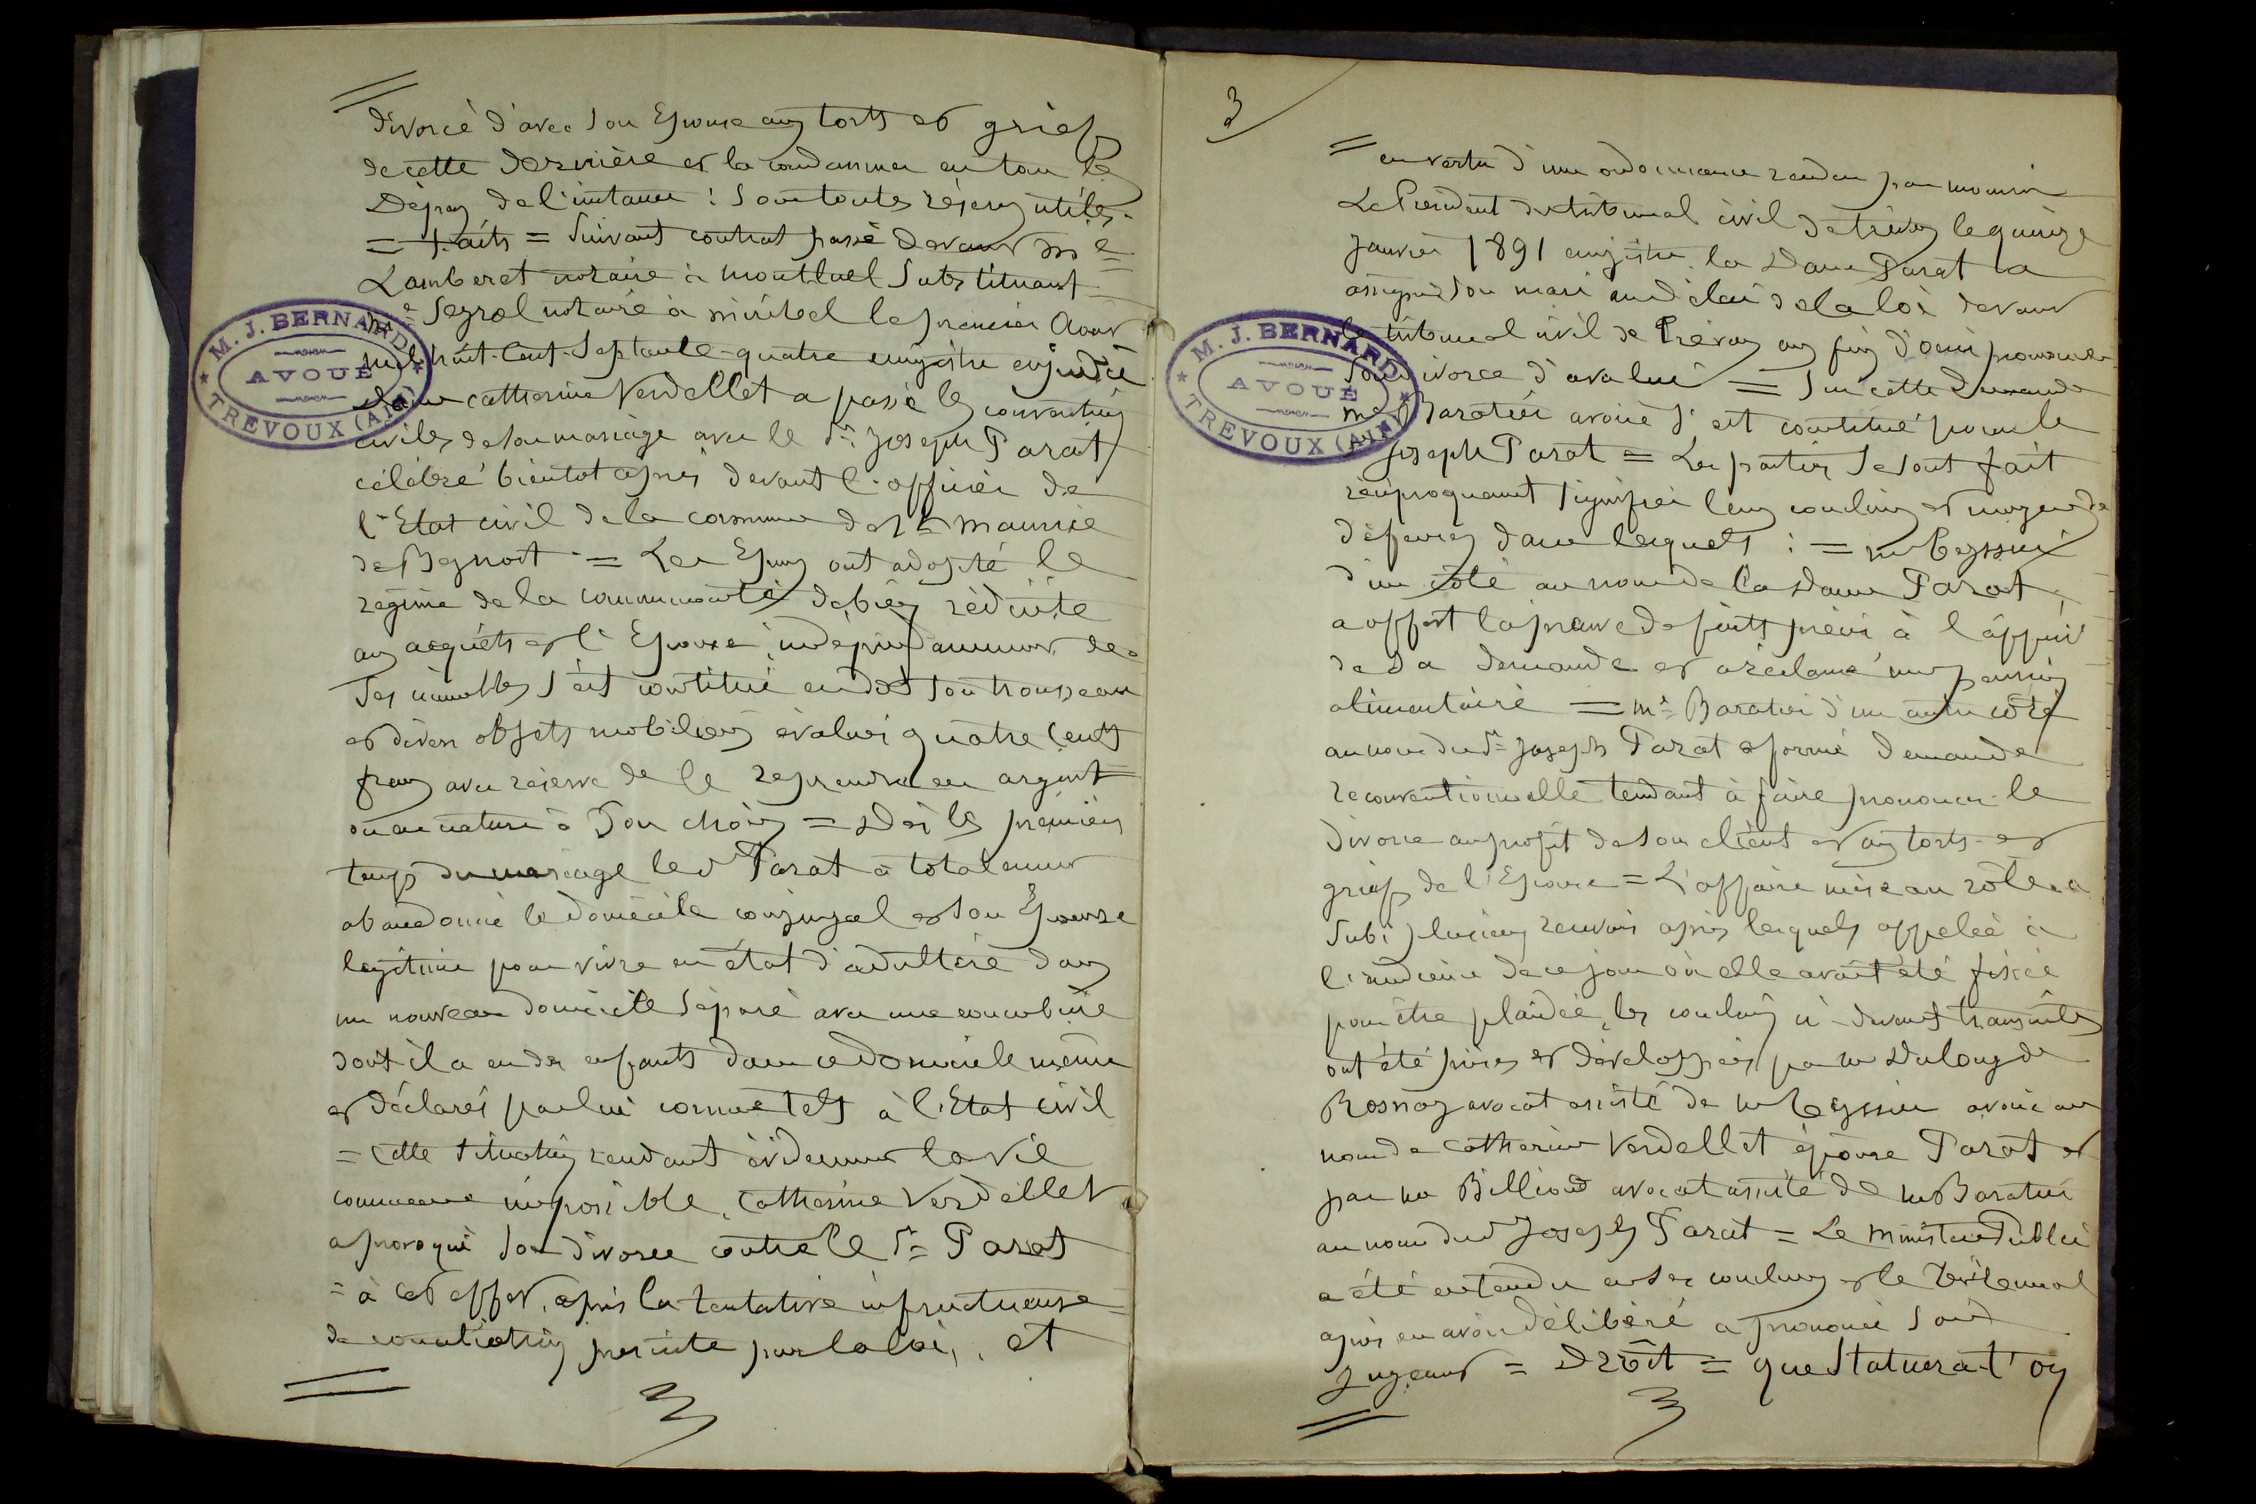 divorcé d'avec son Epouse aux torts et griefs
de cette dernière et la condamner en tous les
Dépens de l'instance : Sous toutes réserves utiles.
= faits = Suivant contrat passé devant Me
Lamberet notaire à Montluel Substituant
Me Seyzol notaire à miribel le premier Aout
mil huit-Cent-Septante-quatre enregistré
Dame Catherine Verdellet a passé les conventions
civiles de son mariage avec le Sr Joseph Parat
célébré bientot après devant l'officier de
l'Etat civil de la commune de St Maurice
de Beynost = Les Epoux ont adopté le
régime de la communauté de biens réduite
aux acquêts et l'Epouse, indépendamment de
ses immeubles s'est constitué en dot son trousseau
et divers objets mobiliers évalués quatre Cents
francs avec réserve de le reprendre en argent
ou en nature à son choix = Dès les premiers
temps du mariage le Sr Parat a totalement
abandonné le domicile conjugal et son Epouse
légitime pour vivre en état d'adultère dans
un nouveau domicile séparé avec une concubine
dont il a eu des enfants dans ce domicile même
et déclarés par lui comme tels à l'Etat civil
= Cette situation rendant évidemment la vie
commune impossible, Catherine Verdellet
a provoqué son divorce contre le Sr Parat
= à cet effet, après la tentative infructueuse
de conciliation prescrite par la loi, et
M. J. BERNARD
AVOUÉ
TREVOUX (AIN)
3
en vertu d'une ordonnance rendue par monsieur
Le Président du tribunal civil de trévoux le quinze
janvier 1891 enregistrée, la Dame Parat a
assigné son mari au délai de la loi devant
le tribunal civil de Trévoux aux fins d'ouir prononcer
son divorce d'avec lui = Sur cette demande
Me Baratier avoué s'est constitué pour le
Joseph Parat = Les parties se sont fait
réciproquement signifier leurs conclusions et moyens de
défenses dans lesquels : = Me Teyssier
d'un côté au nom de la Dame Parat,
a offert la preuve de faits précis à l'appui
de sa demande et a réclamé une pension
alimentaire = Me Baratier d'un autre côté
au nom du Sr Joseph Parat a formé demande
reconventionnelle tendant à faire prononcer le
divorce au profit de son client et aux torts et
griefs de l'Epouse = L'affaire mise au rôle a
subi plusieurs renvois après lesquels appelée à
l'audience de ce jour où elle avait été fixée
pour être plaidée, les conclusions ci-devant transcrites
ont été prises et développées par Me Dulong de
Rosnay avocat assisté de Me Teyssier avoué au
nom de Catherine Verdellet épouse Parat et
par Me Billioud avocat assisté de Me Baratier
au nom du Sr Joseph Parat = Le Ministère Public
a été entendu en ses conclusions et le Tribunal
après en avoir délibéré a prononcé
Jugement = Droit = que Statuera-t'on
M. J. BERNARD
AVOUÉ
TREVOUX (AIN)